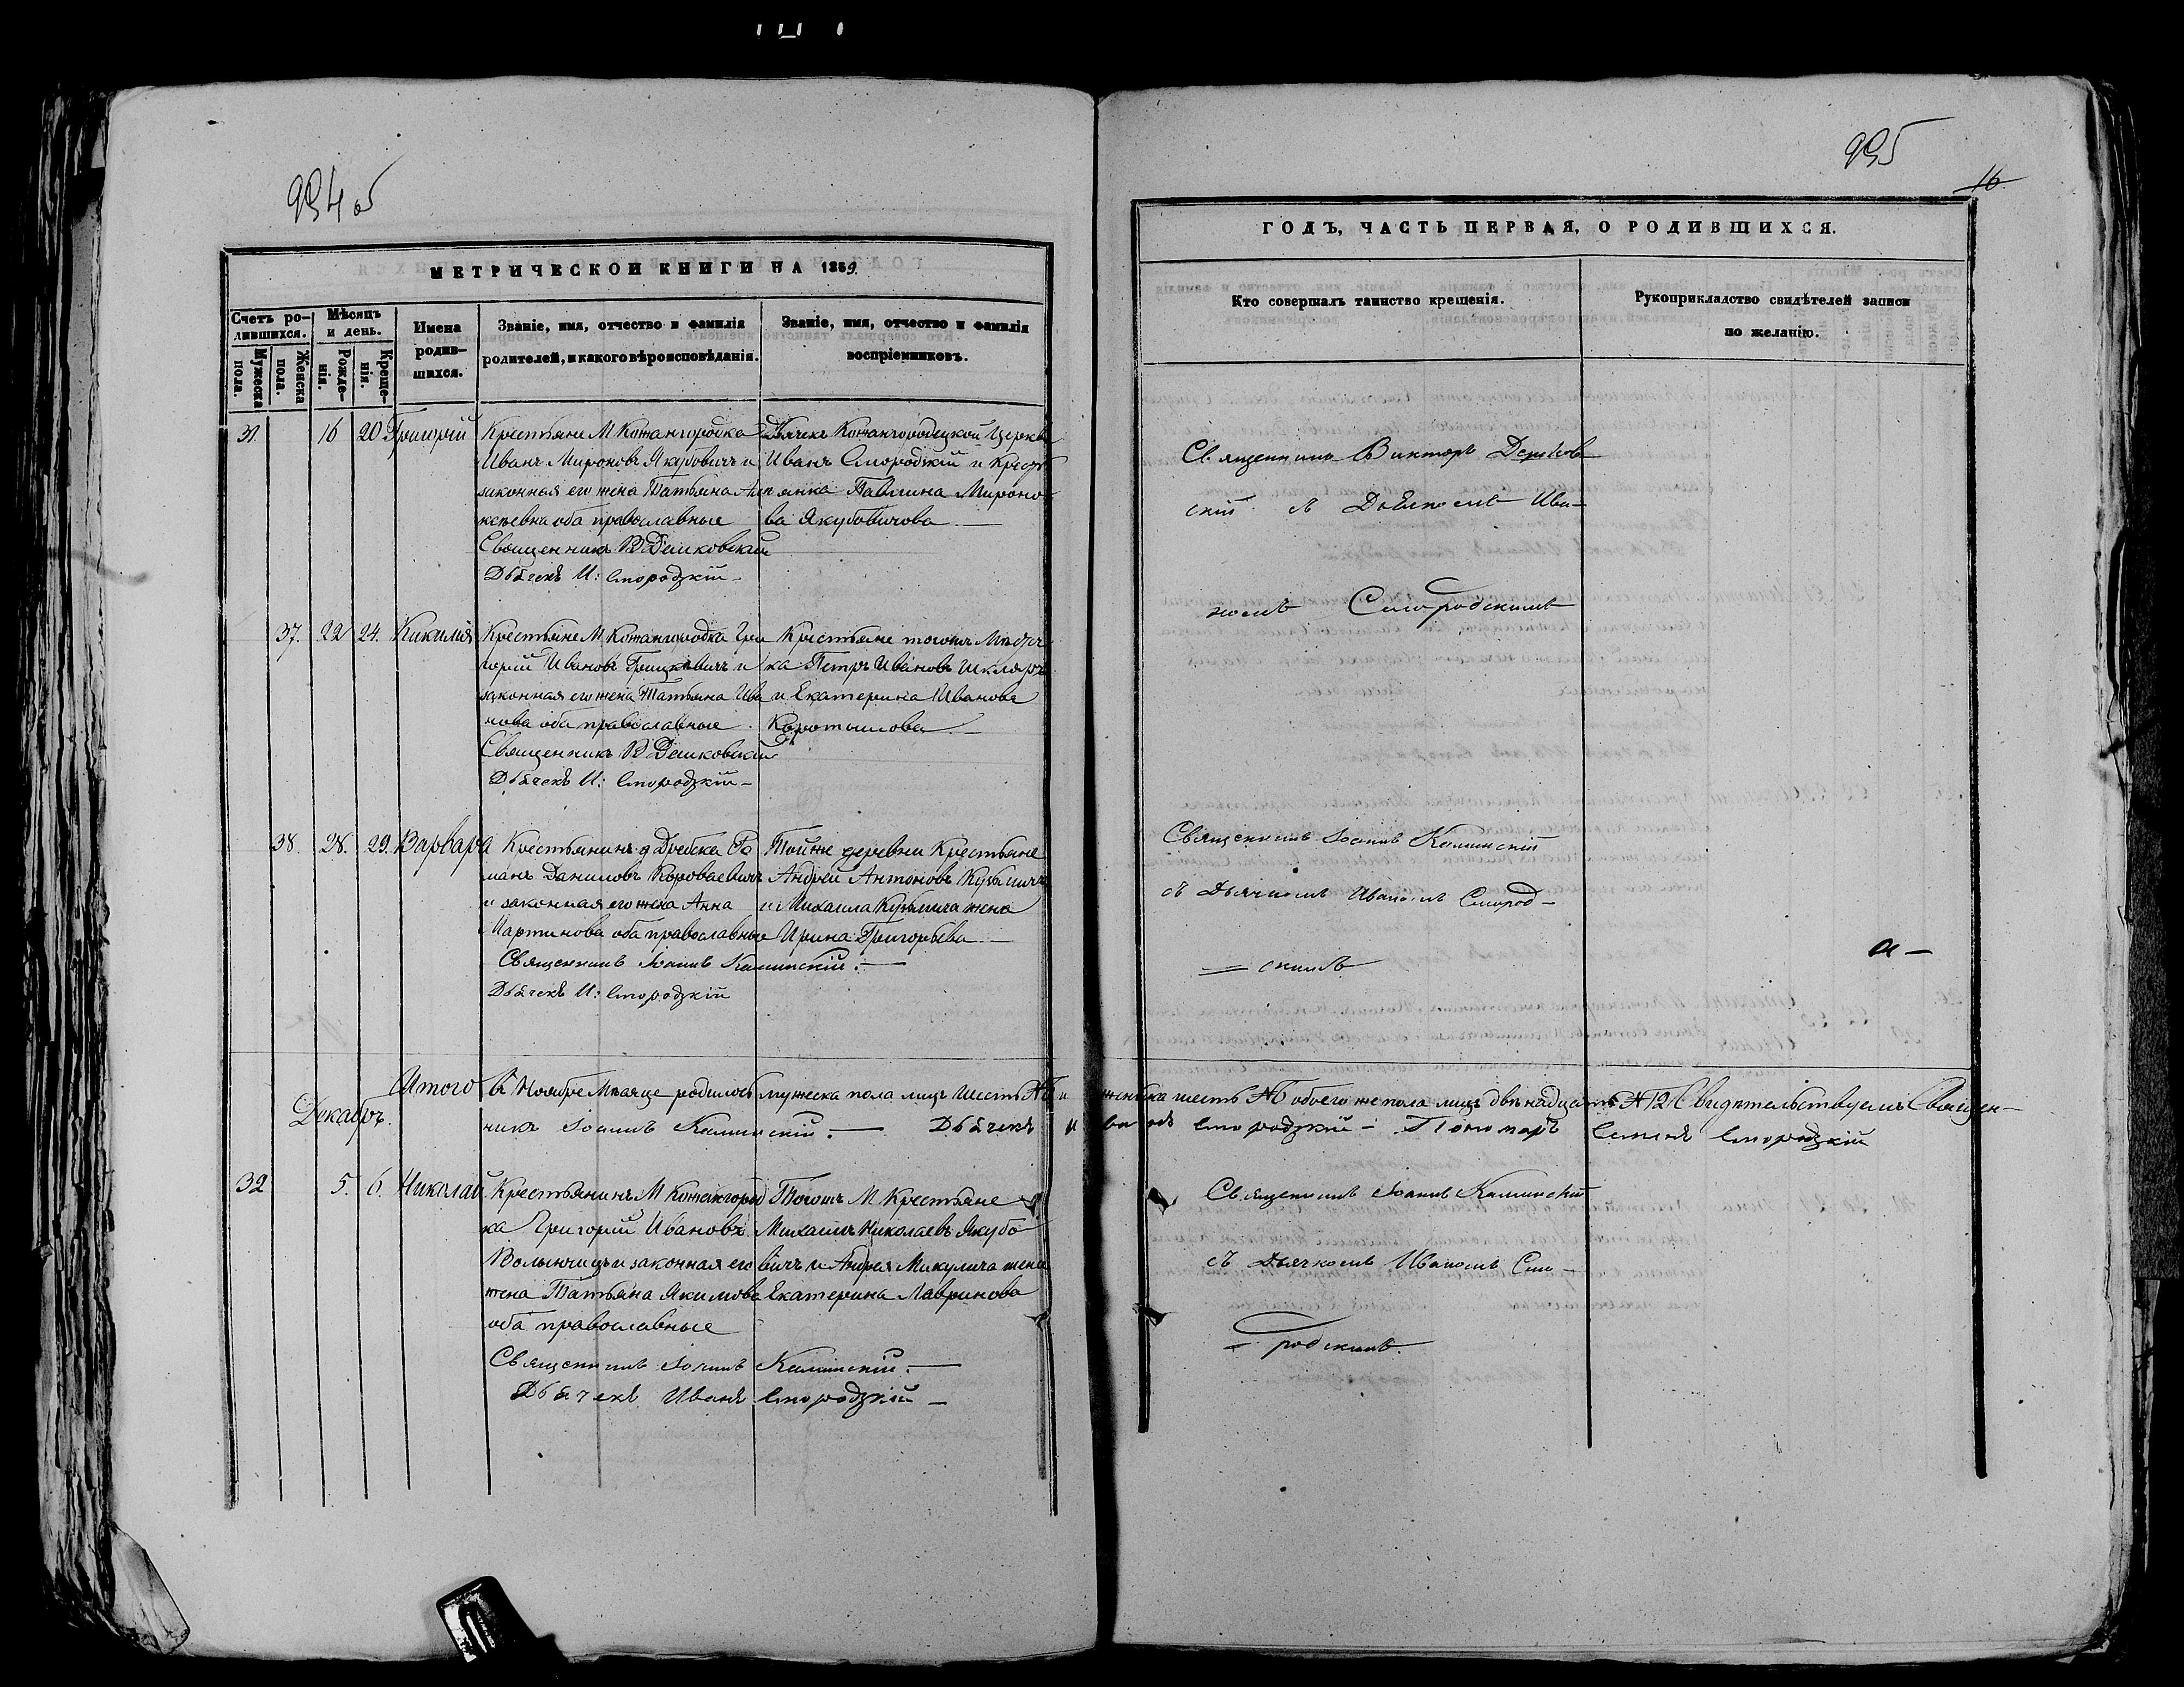 934 об
МЕТРИЧЕСКОЙ КНИГИ НА 1859.
Счетъ ро-
дившихся.
Мужеска пола.
Женска пола.
Мѣсяцъ
и день.
Рожде-
нія.
Креще-
нія.
Имена
родив-
шихся.
Званіе, имя, отчество и фамилія
родителей, и какого вѣроисповѣданія.
Званіе, имя, отчество и фамилія
воспріемниковъ.
31. 16 20 Григорій
Крестьяне М Кожангородка
Иванъ Мироновъ Якубовичъ и
законная его жена Татьяна Але
ксѣевна оба православные
Священникъ В Дешковскій
Дьячекъ И: Смородзкій
Дьячекъ Кожангородецкой Церкви
Иванъ Смородзкій и Крестъ
янка Павлина Мироно
ва Якубовичова
37. 22 24. Кикилія
Крестьяне М Кожангородка Гри
горій Ивановъ Грицкевичъ и
законная его жена Татьяна Ива
нова оба православные
Священникъ В Дешковскій
Дьячекъ И: Смородзкій
Крестьяне тогожъ Мѣстеч
ка Петръ Ивановъ Шкляръ
и Екатерина Иванова
Коротышова
38. 28. 29. Варвара
Крестьянинъ д Дребска Ро
манъ Даниловъ Короваевичъ
и законная его жена Анна
Мартинова оба православные
Священникъ Іоаннъ Каминскій.
Дьячекъ И: Смородзкій
Тойже деревни Крестьяне
Андрей Антоновъ Кузьмичъ
и Михаила Кузьмича жена
Ирина Григорьева
Итого въ Ноябре Месяце родилось мужеска пола лицъ шесть №6 и женска шесть №6 обоего же пола лицъ двѣнадцать №12 Свидѣтельствуемъ Священ-
никъ Іоаннъ Каминскій. Дьячекъ Иванъ Смородзкій Пономарь Семенъ Смородзкій
Декабрь.
32 5. 6. Николай
Крестьянинъ М Кожангород
ка Григорій Ивановъ
Волынчицъ и законная его
жена Татьяна Якимова
оба православные
Священникъ Іоаннъ Каминскій.
Дьячекъ Иванъ Смородзкій
Тогожъ М Крестьяне
Михаилъ Николаевъ Якубо
вичъ и Андрея Микулича жена
Екатерина Лавринова
935
16
ГОДЪ, ЧАСТЬ ПЕРВАЯ, О РОДИВШИХСЯ.
Кто совершалъ таинство крещенія.
Рукоприкладство свидѣтелей записи
по желанію.
Священникъ Викторъ Дешков
скій съ Дьячкомъ Ива-
номъ Смородскимъ
Священникъ Іоаннъ Каминскій
съ Дьячкомъ Иваномъ Смород-
скимъ
Священникъ Іоаннъ Каминскій
съ Дьячкомъ Иваномъ Смо-
родскимъ.